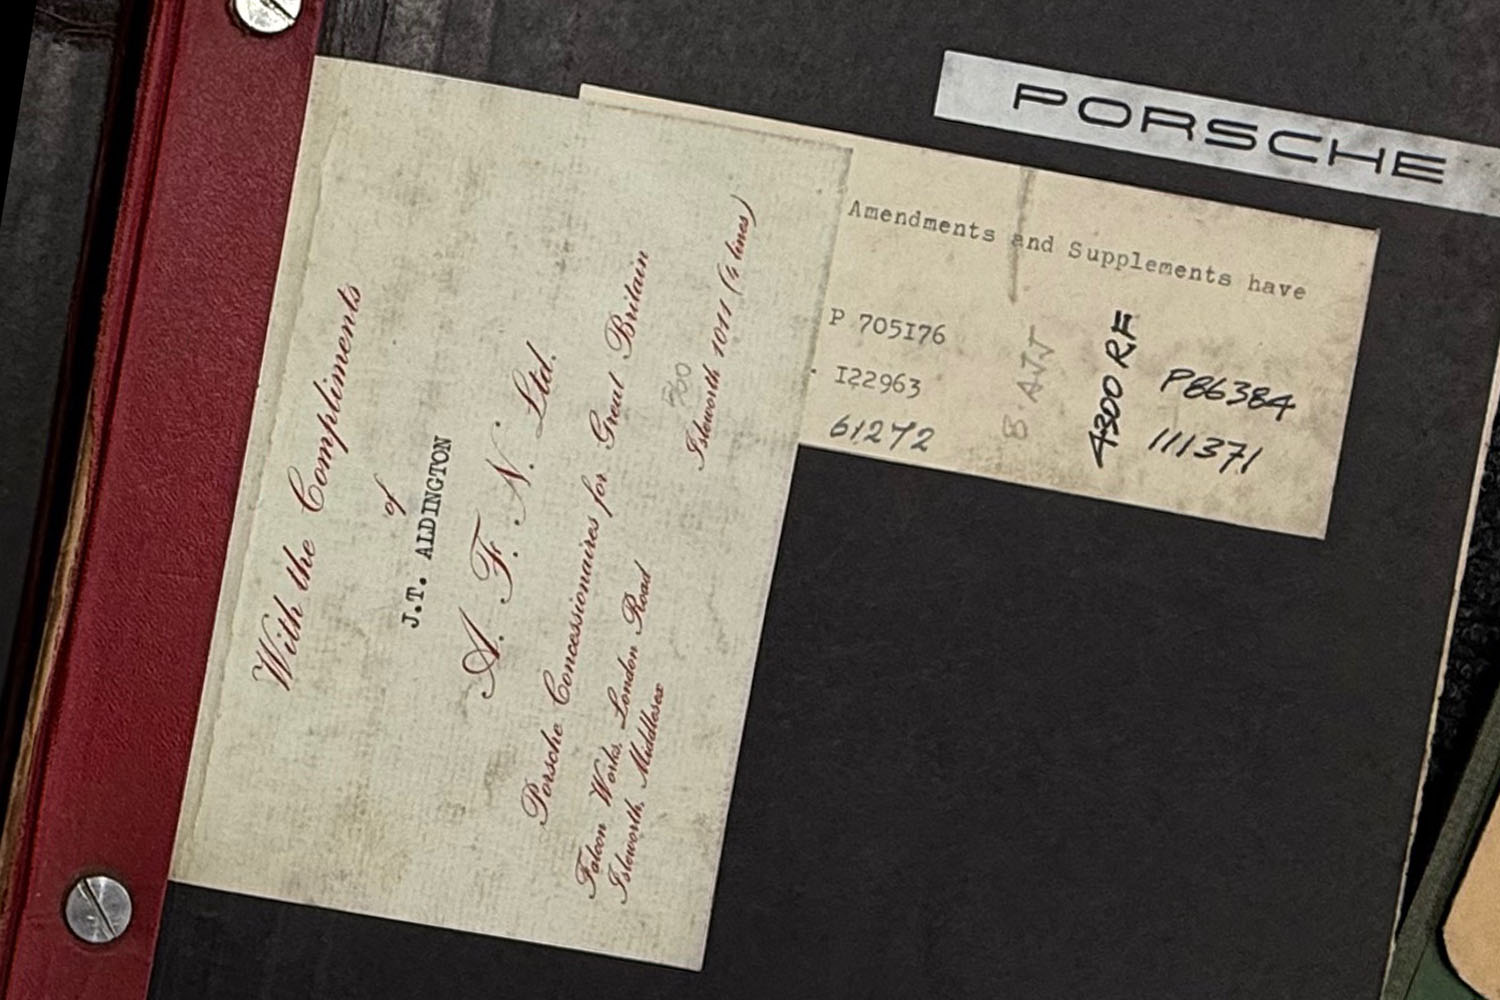 PORSCHE
With the Compliments
of
J.T. ALDINGTON
A. F. N. Ltd.
Porsche Concessionaires for Great Britain
Falcon Works, London Road
Isleworth, Middlesex
Isleworth 1011 (4 lines)
Amendments and Supplements have
P 705176
I22963
61272
4300 RF
P86384
111371